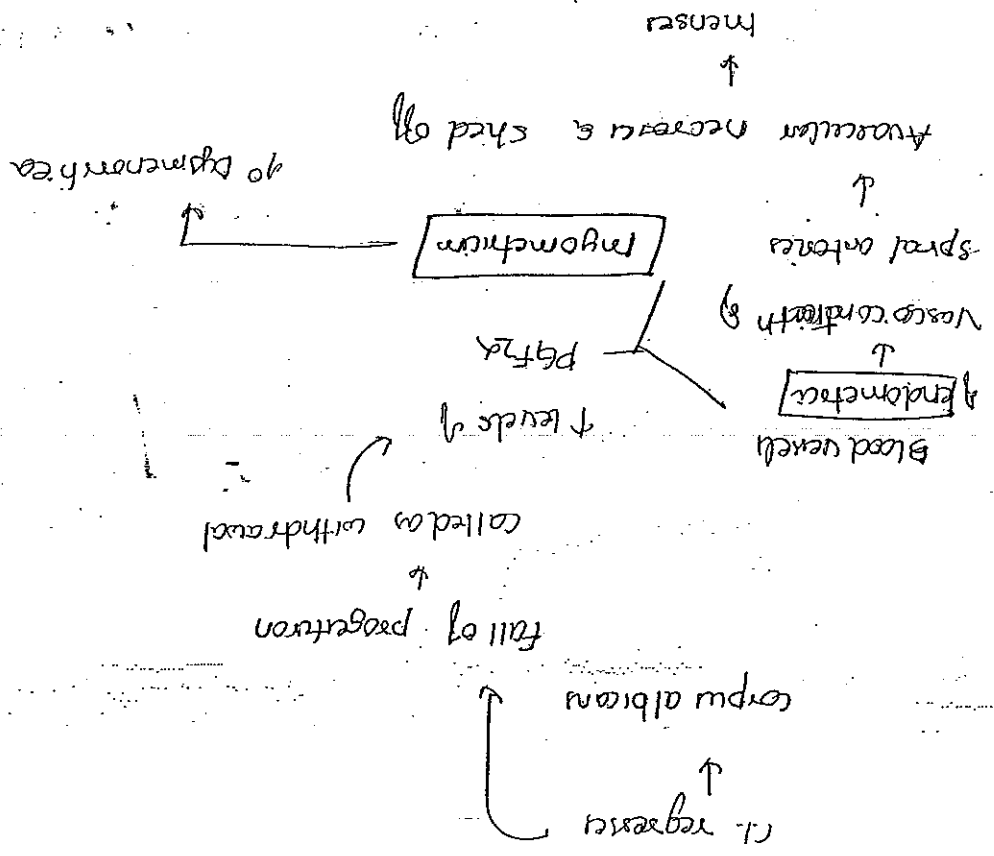 C.L. regresses
↓
corpus albicans
fall of progesteron
↓
called as withdrawal
↑ levels of
PGF2α
Blood vessels
of Endometri
↓
Vasoconstrictn of
spiral arteries
↓
Avascular necrosis & shed off
↓
menses
myometrium
1° Dysmenorrhea